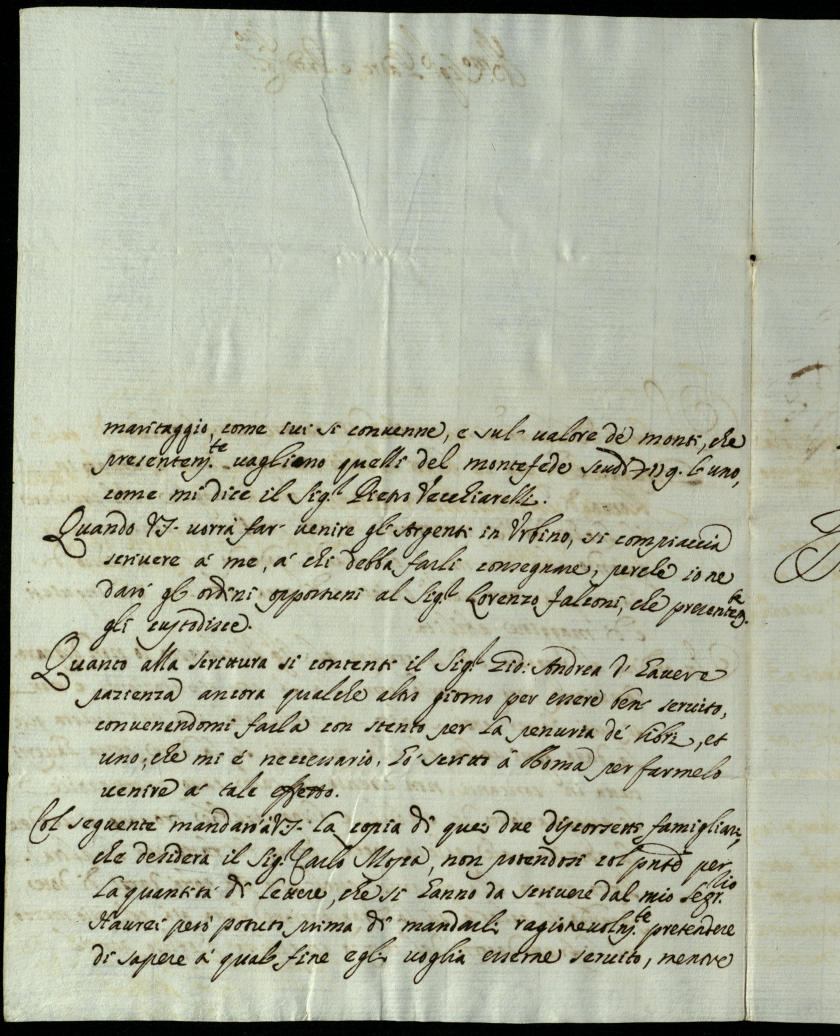 maritaggio, come ivi si convenne, e sul valore de' monti, che
presentem.te vagliono quelli del montefede scudi 119. l'uno,
come mi dice il Sig.r Pietro Vecchiarelli.
Quando VS. vorrà far venire gli Argenti in Urbino, si compiaccia
scrivere à me, à chi debba farli consegnare, perche io ne
darò gli ordini opportuni al Sig.r Lorenzo Falconi, che presentem.te
gli custodisce.
Quanto alla scrittura si contenti il Sig.r Gio: Andrea d'havere
pazienza ancora qualche altro giorno per essere ben servito,
convenendomi farla con stento per la penuria de' libri, et
uno, che mi è necessario, hò scritto à Roma per farmelo
venire à tale effetto.
Col seguente mandarò à VS. la copia di quei due discorsetti famigliari,
che desidera il Sig.r Carlo Mosca, non potendosi col pñte per
la quantità di lettere, che si hanno da scrivere dal mio Segr.rio
Haurei però potuto prima di mandarli ragionevolm.te pretendere
di sapere à qual fine egli voglia esserne servito, mentre